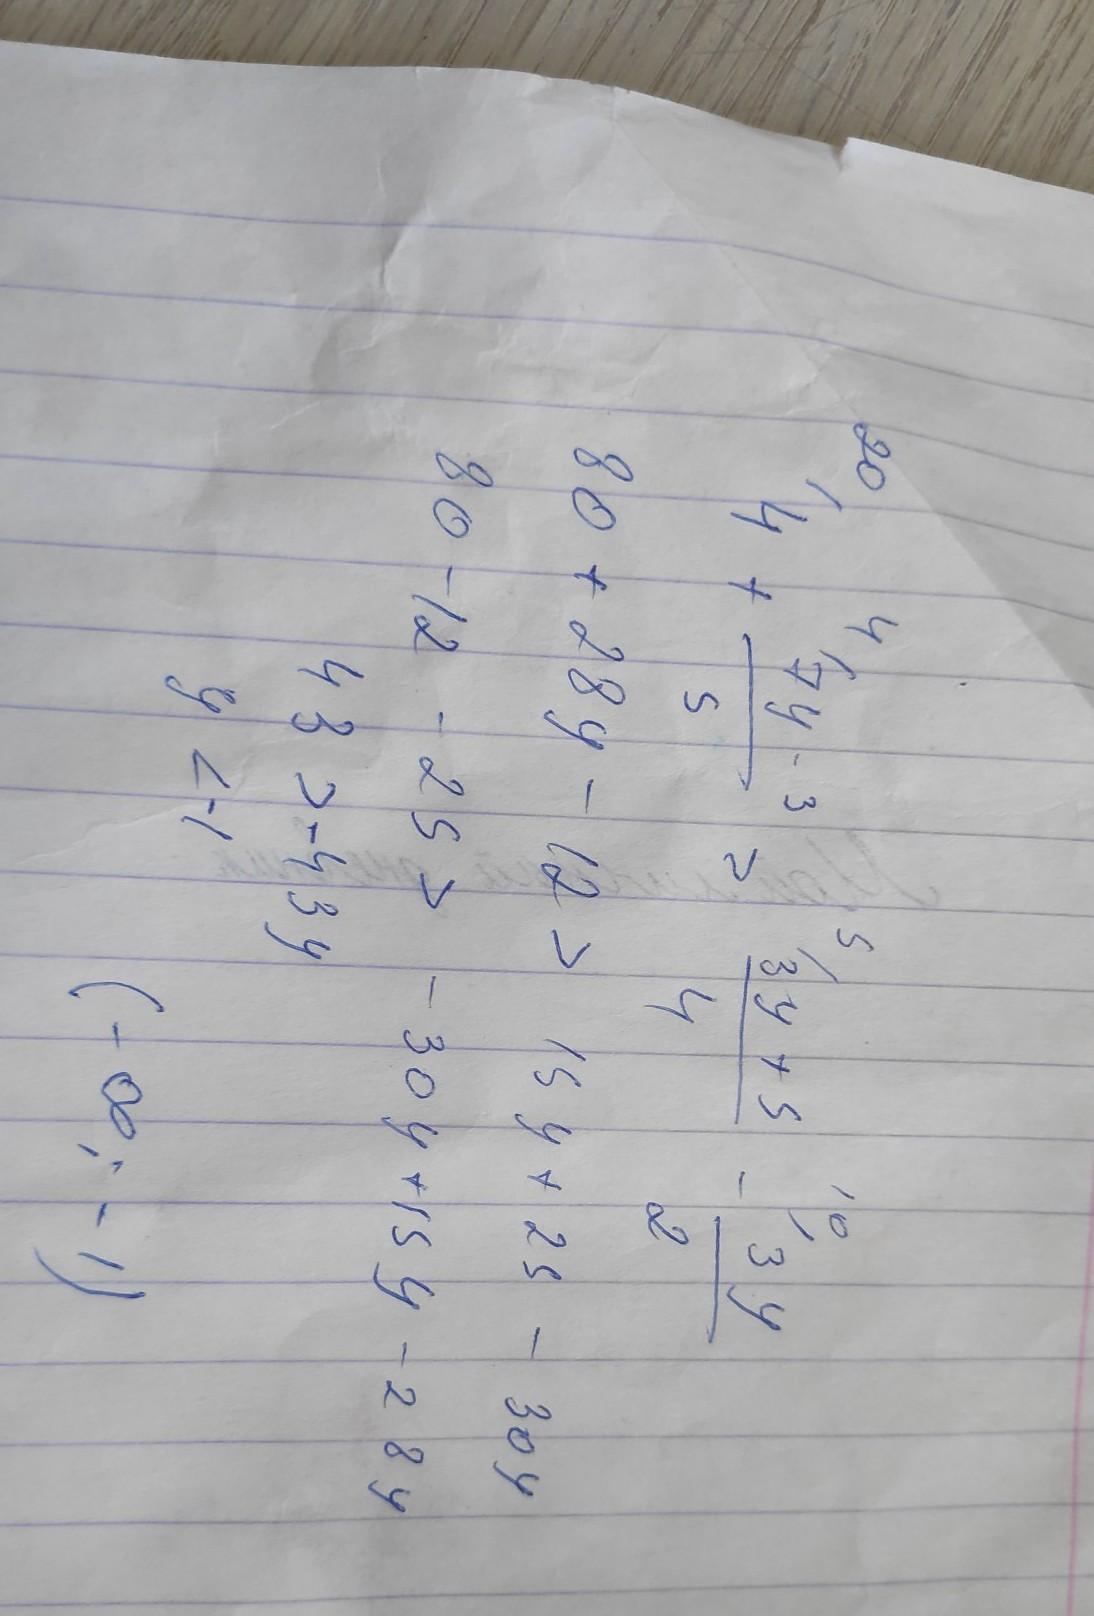 20/ 4 + 4/ (7y - 3)/5 > 5/ (3y + 5)/4 - 10/ 3y/2
80 + 28y - 12 > 15y + 25 - 30y
80 - 12 - 25 > - 30y + 15y - 28y
43 > -43y
y < -1
(-∞; -1)